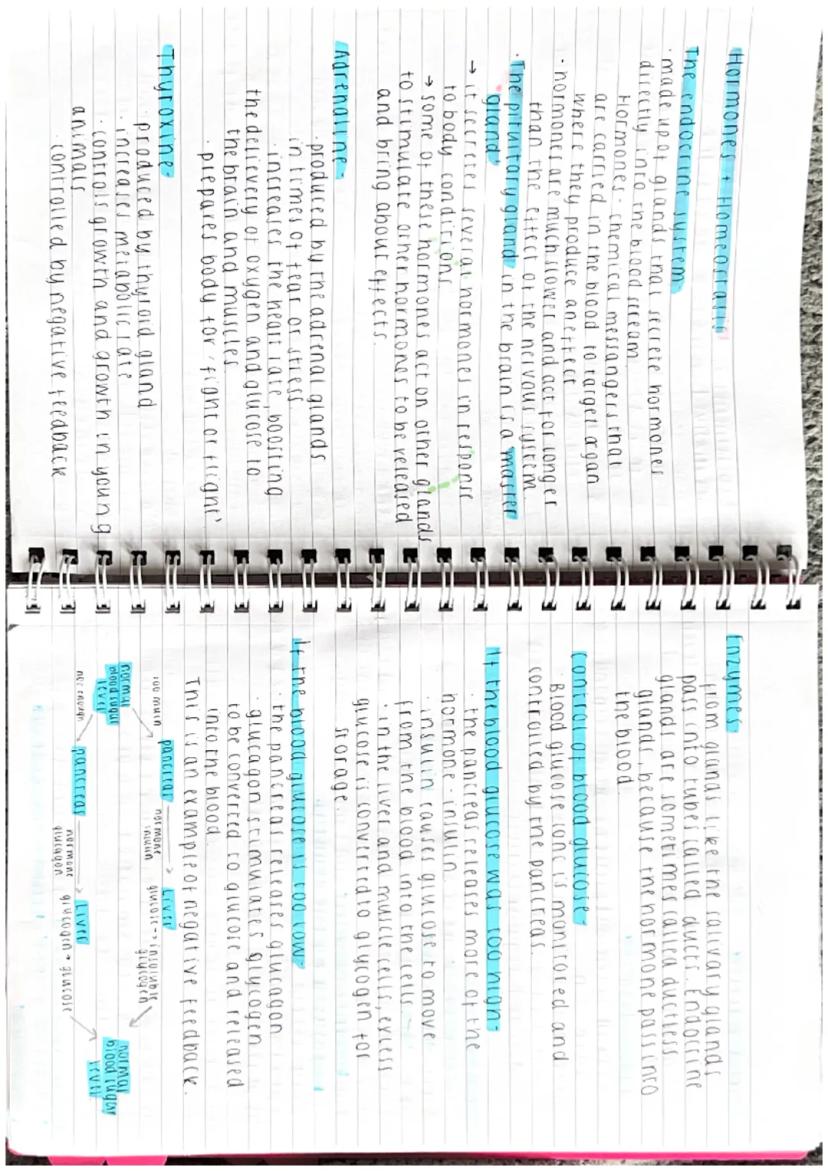 Hormones + Homeostasis
The endocrine system
· made up of glands that secrete hormones
directly into the blood stream
Hormones - chemical messangers that
are carried in the blood to target organ
where they produce an effect
· hormones are much slower and act for longer
than the effect of the nervous system
· The pituitary gland in the brain is a 'master
gland'
→ it secretes several hormones in response
to body conditions
→ some of these hormones act on other glands
to stimulate other hormones to be released
and bring about effects.
Adrenaline -
· produced by the adrenal glands
in times of fear or stress.
· increases the heart rate, boosting
the delivery of oxygen and glucose to
the brain and muscles
· prepares body for 'fight or flight'
Thyroxine -
· produced by thyroid gland
· increases metabolic rate
· controls growth and growth in young
animals
· controlled by negative feedback
Enzymes
from glands like the salivary glands
pass into tubes called ducts. Endocrine
glands are sometimes called ductless
glands, because the hormone pass into
the blood
Control of blood glucose
· Blood glucose conc is monitored and
controlled by the pancreas.
If the blood glucose was too high -
· the pancreas releases more of the
hormone - insulin.
· insulin causes glucose to move
from the blood into the cells
· in the liver and muscle cells, excess
glucose is converted to glycogen for
storage.
If the blood glucose is too low -
· the pancreas releases glucagon
· glucagon stimulates glycogen
to be converted to glucose and released
into the blood.
This is an example of negative feedback.
pancreas
hormone
insulin
Liver
glucose → insoluble
glycogen
normal
blood sugar
level
normal
blood sugar
level
pancreas
hormone
glucagon
Liver
glucogen → glucose